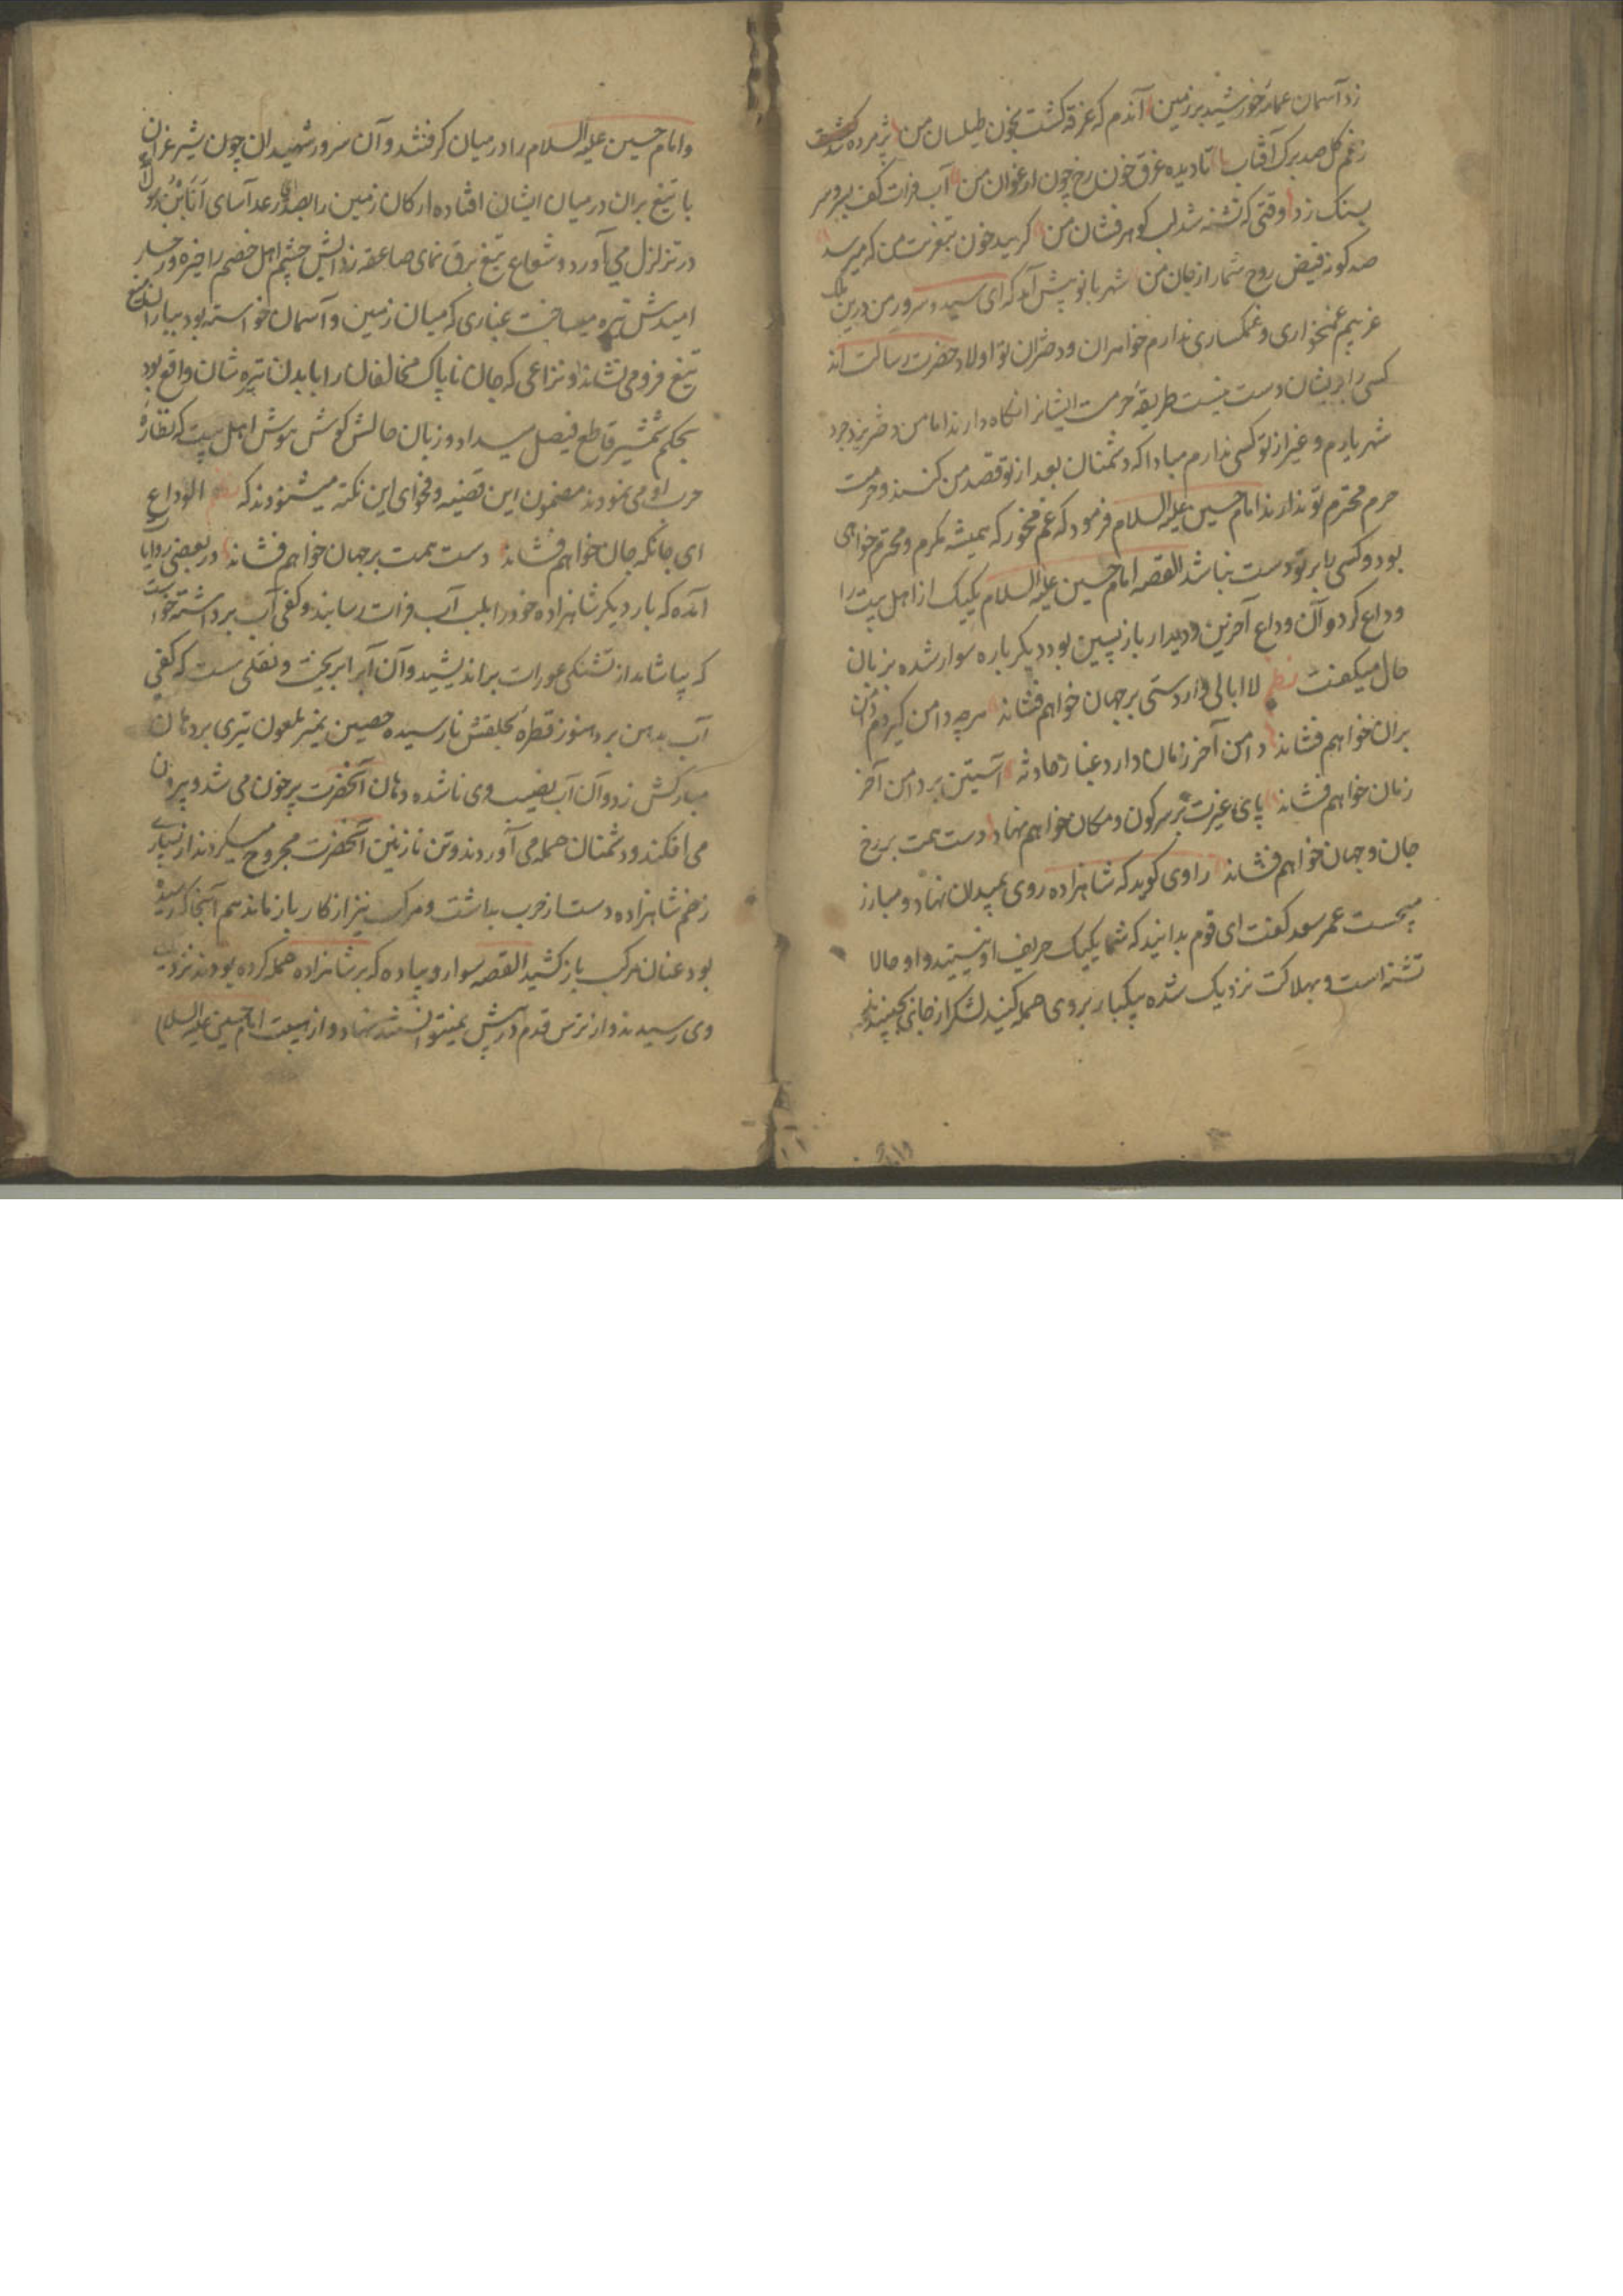 زد آسمان عمامهٔ خورشید بر زمین آندم که غرقه کشت بخون طیلسان من پژمرده شد
زغم کل صد برک آفتاب تا دیده غرق خون رخ چون ارغوان من آب فرات کف بر سر
بسنک زد وقتی که تشنه شد لب کوهر فشان من کریید خون بتعزیت من که میرسد
صد کونه فیض روح شما را از جان من شهربانو پیش آمد که ای سید و سرور من درین ملک
غریبم غمخواری و غمکساری ندارم خواهران و دختران تو اولاد حضرت رسالت اند
کسی را بریشان دست نیست طریقهٔ حرمت ایشانرا نکاه دارند اما من دختر یزدجرد
شهریارم و غیر از تو کسی ندارم مبادا که دشمنان بعد از تو قصد من کنند و حرمت
حرم محترم تو ندارند امام حسین علیه السلام فرمود که غم مخور که همیشه مکرم و محترم خواهی
بود و کسی را بر تو دست نباشد القصه امام حسین علیه السلام یکیک از اهل بیت را
وداع کرد و آن وداع آخرین و دیدار بازپسین بود دیکر باره سوار شده بزبان
حال میکفت نظم لاابالی وار دستی بر جهان خواهم فشاند هرچه دامن کیردم دامن
بران خواهم فشاند دامن آخر زمان دارد غبار حادثه آستین بر دامن آخر
زمان خواهم فشاند پای غیرت بر سر کون و مکان خواهم نهاد دست همت بر رخ
جان و جهان خواهم فشاند راوی کوید که شاهزاده روی بمیدان نهاد و مبارز
میجست عمر سعد کفت ای قوم بدانید که شما یکیک حریف او نیستید و او حالا
تشنه است و بهلاکت نزدیک شده بیکبار بروی حمله کنید لشکر از جای بجنبیدند
و امام حسین علیه السلام را در میان کرفتند و آن سرور شهیدان چون شیر غران
با تیغ بران در میان ایشان افتاده ارکان زمین را بصدای رعد آسای انا ابن رسول الله
در تزلزل می آورد و شعاع تیغ برق نمای صاعقه زدایش چشم اهل خصم را خیره و رخسار
امیدش تیره میساخت غباری که میان زمین و آسمان خواسته بود بباران
تیغ فرو می نشاند و نزاعی که جان ناپاک مخالفان را با بدن تیره شان واقع بود
بحکم شمشیر قاطع فیصل میداد و زبان حالش کوش هوش اهل بیت که نظارهٔ
حرب او می نمودند مضمون این قضیه و فحوای این نکته میشنودند که نظم الوداع
ای جانکه جان خواهم فشاند دست همت بر جهان خواهم فشاند در بعضی روایات
آمده که بار دیکر شاهزاده خود را بلب آب فرات رسانید و کفی آب برداشته خواست
که بیاشامد از تشنکی عورات براندیشید و آن آب را بریخت و نقلی ست که کفی
آب بدهن برد هنوز قطرهٔ بحلقش نارسیده حصین نمیر ملعون تیری بر دهان
مبارکش زد و آن آب نصیب وی ناشده دهان آنحضرت پر خون می شد و بیرون
می افکند و دشمنان حمله می آوردند و تن نازنین آنحضرت مجروح میکردند از بسیاری
زخم شاهزاده دست از حرب بداشت و مرکب نیز از کار باز ماند هم آنجا که رسیده
بود عنان مرکب باز کشید القصه سوار و پیاده که بر شاهزاده حمله کرده بودند نزدیک
وی رسیدند و از ترس قدم در پیش نمیتوانستند نهاد و از هیبت امام حسین علیه السلام